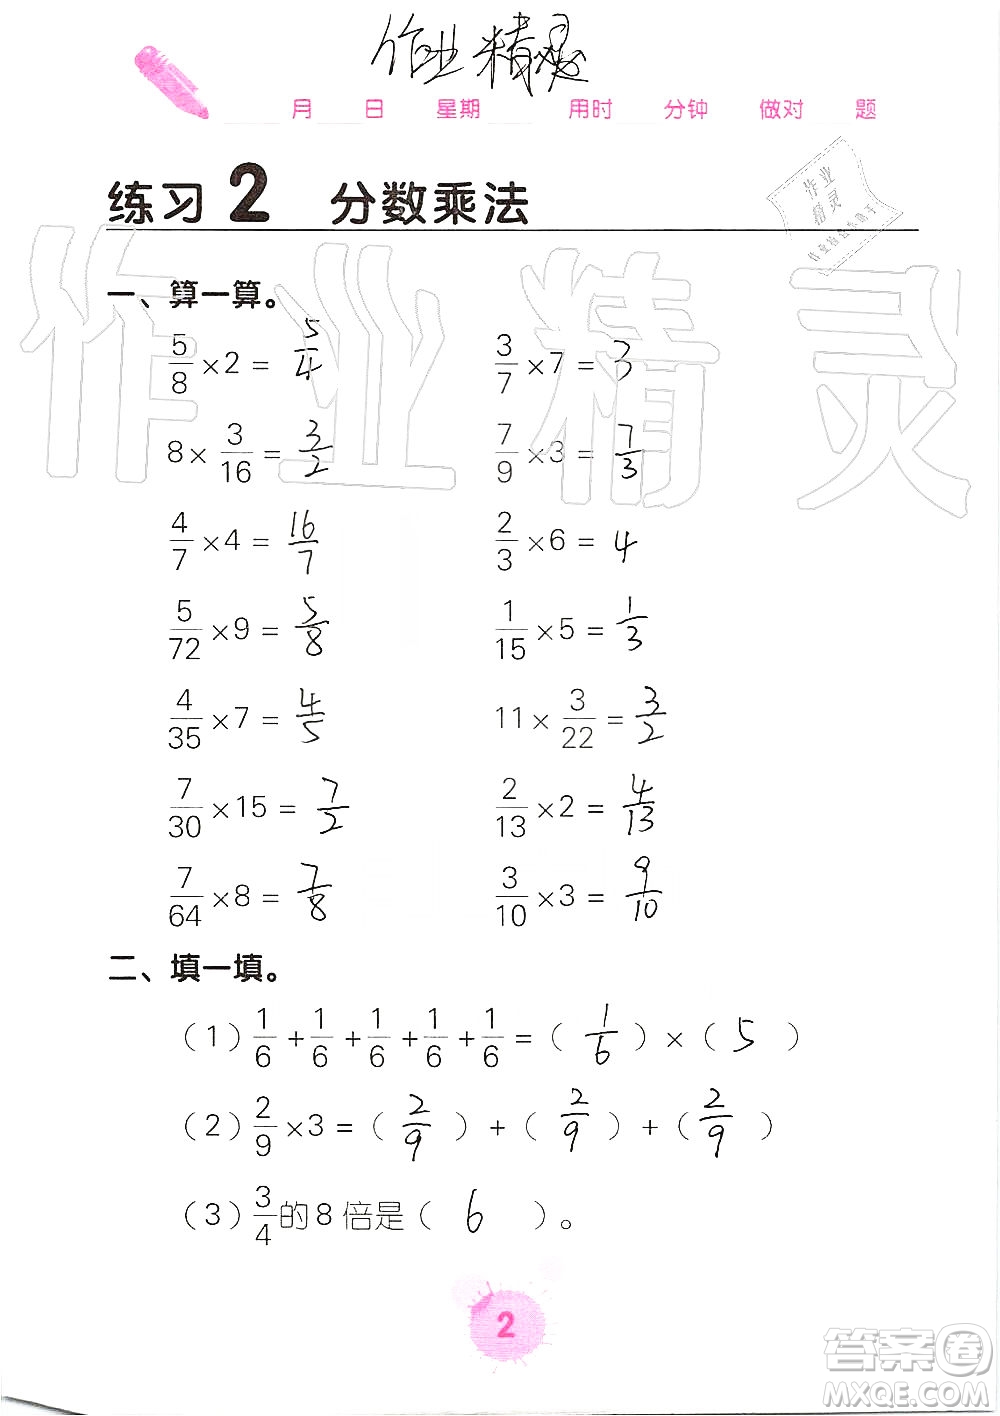 作业精灵
月 日 星期 用时 分钟 做对 题
练习2 分数乘法
作业
精灵
作业精灵
一、算一算。
5/8 ×2 = 5/4 3/7 ×7 = 3
8× 3/16 = 3/2 7/9 ×3 = 7/3
4/7 ×4 = 16/7 2/3 ×6 = 4
5/72 ×9 = 5/8 1/15 ×5 = 1/3
4/35 ×7 = 4/5 11× 3/22 = 3/2
7/30 ×15 = 7/2 2/13 ×2 = 4/13
7/64 ×8 = 7/8 3/10 ×3 = 9/10
二、填一填。
（1）1/6 + 1/6 + 1/6 + 1/6 + 1/6 =（ 1/6 ）×（ 5 ）
（2）2/9 ×3 =（ 2/9 ）+（ 2/9 ）+（ 2/9 ）
（3）3/4 的8倍是（ 6 ）。
2
答案圈
MXQE.COM